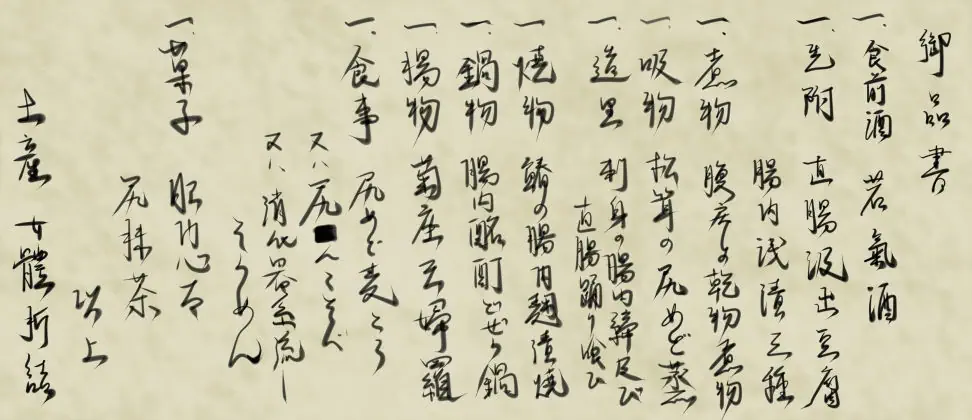 御品書
一、食前酒 若氣酒
一、先附 直腸汲出豆腐
腸内浅漬三種
一、煮物 腹序の乾物煮物
一、吸物 松茸の尻めど蒸
一、造里 刺身の腸内締尻び
直腸踊り喰ひ
一、燒物 鰆の腸内麹漬燒
一、鍋物 腸内酩酊どぜう鍋
一、揚物 菊座天婦羅
一、食事 尻めど麦とろ
又ハ 尻■んこそば
又ハ 消化器系流し
そうめん
一、菓子 肛門心太
尻抹茶
以上
土産 女體折詰